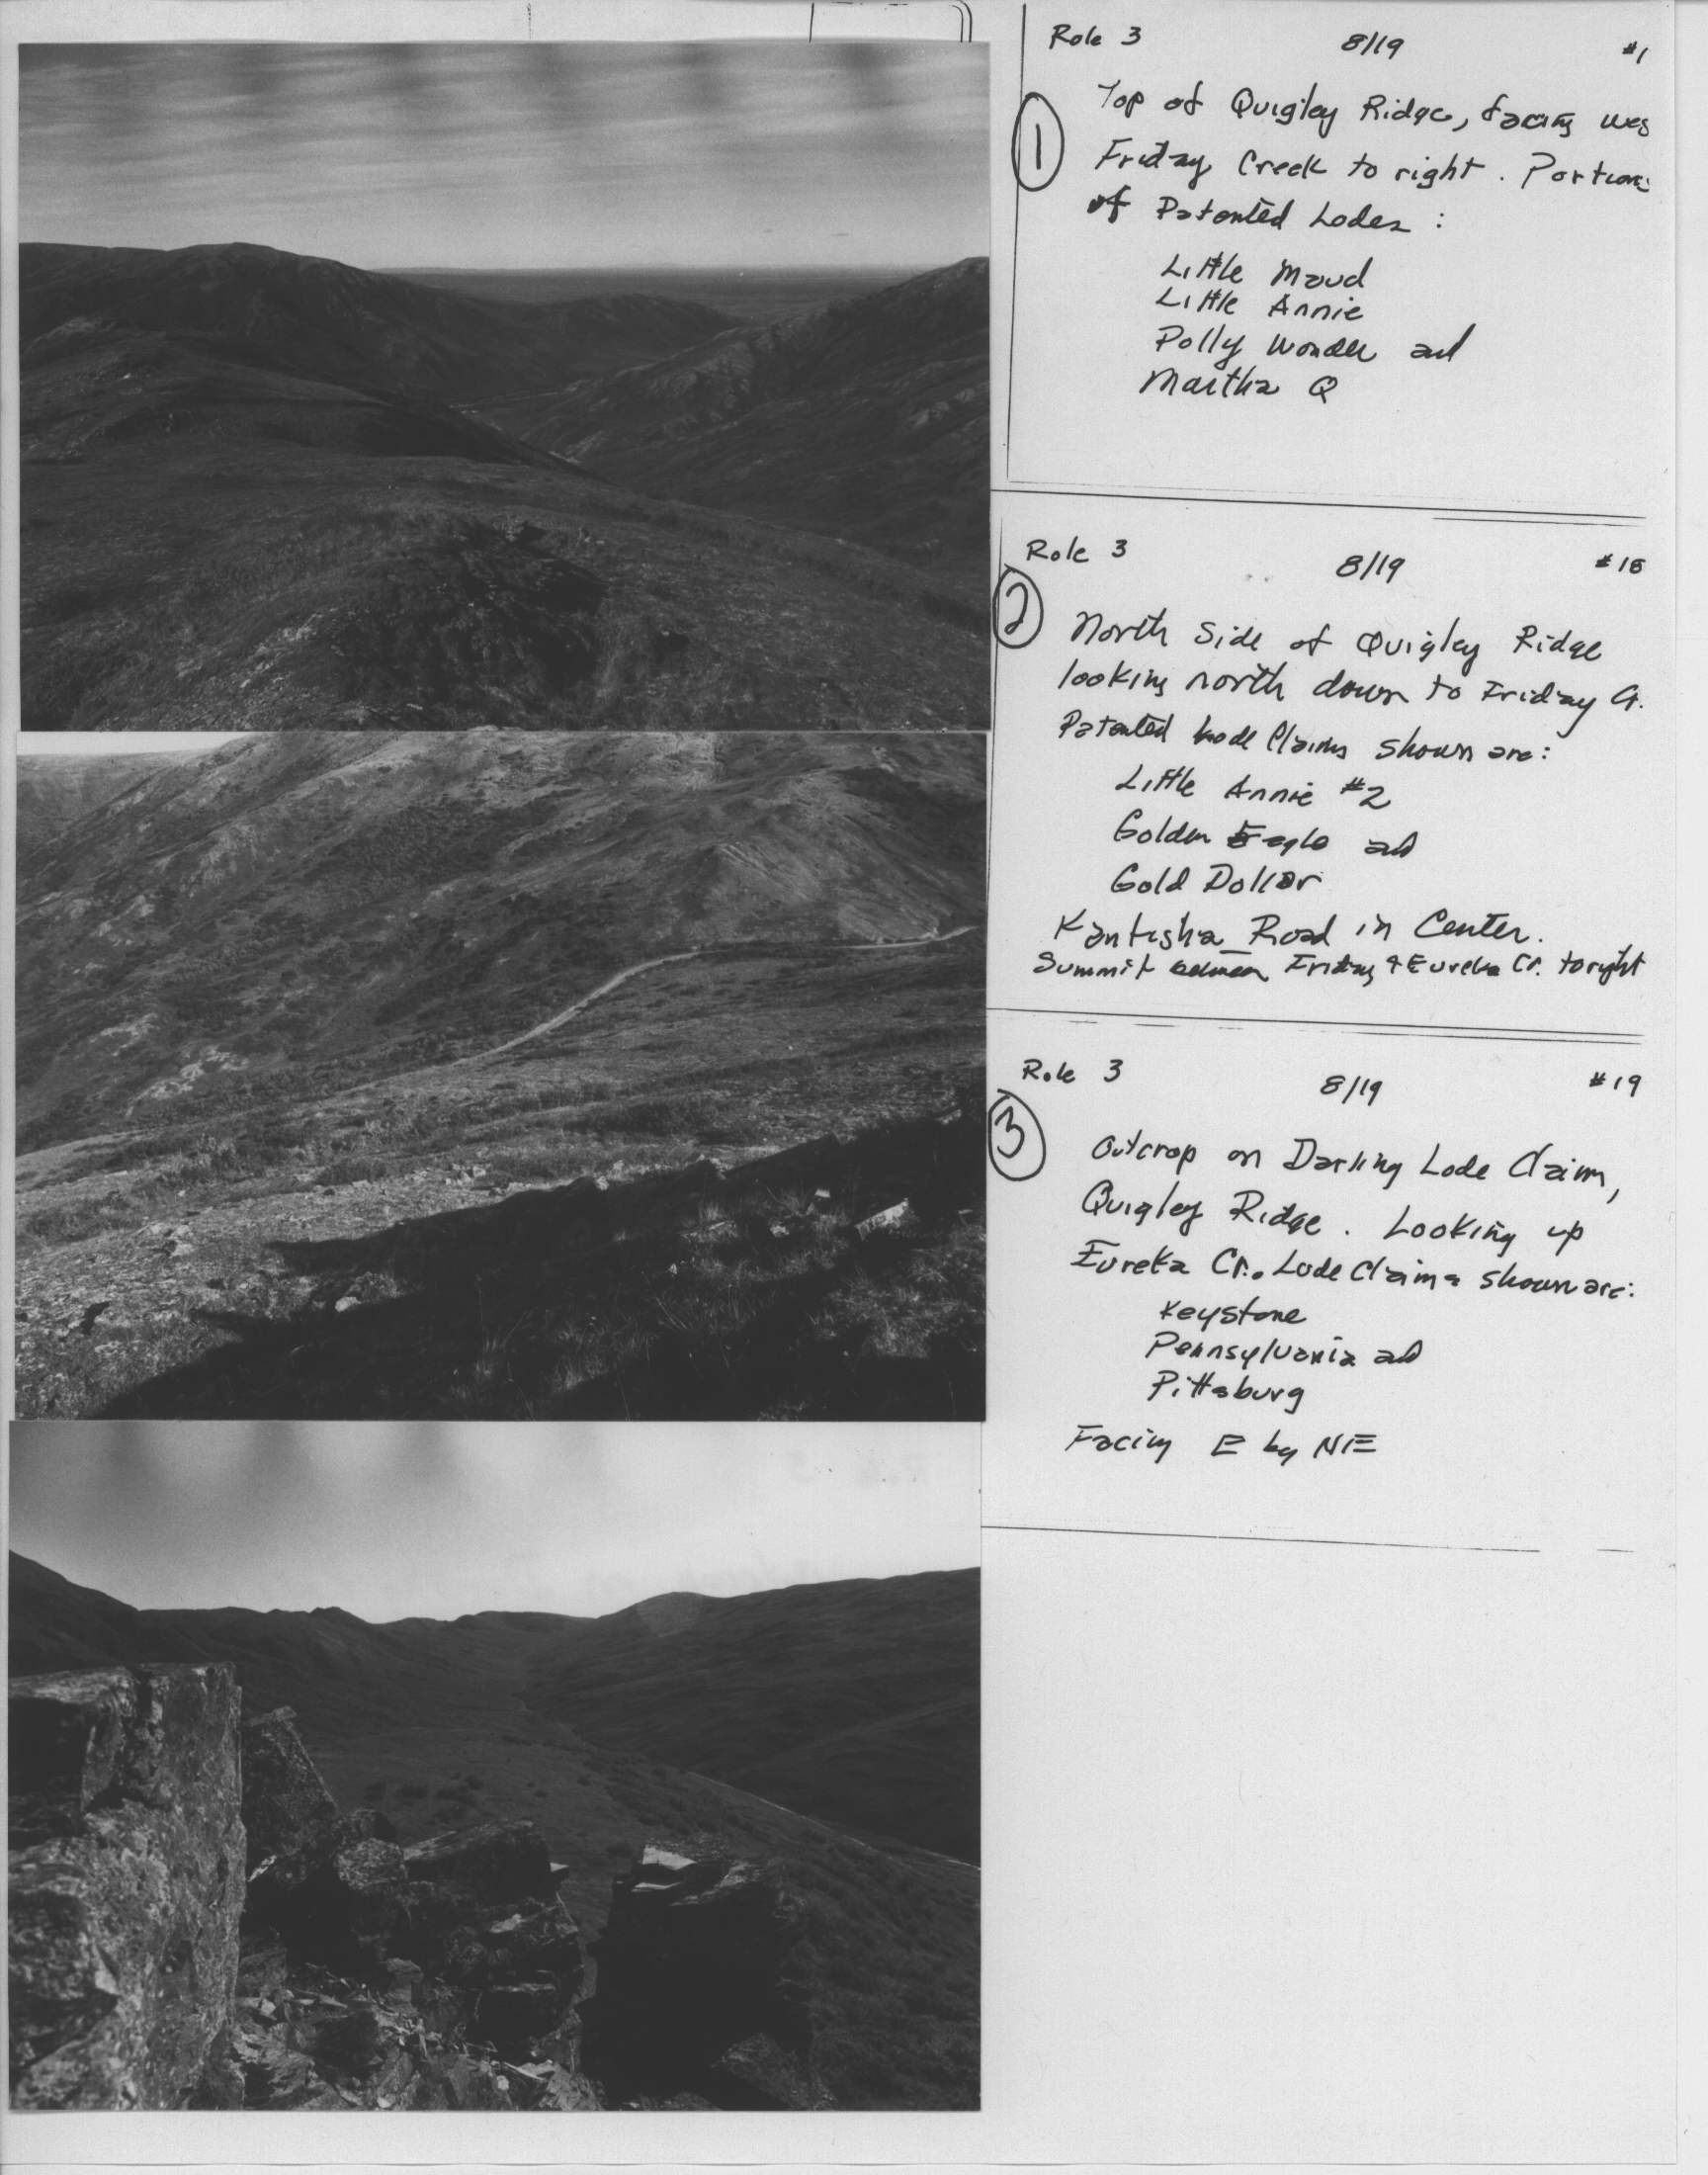 Role 3 8/19 #1
1
Top of Quigley Ridge, facing wes
Friday Creek to right. Portions
of Patented Lodes :
Little Maud
Little Annie
Polly Wonder and
Martha Q
Role 3 8/19 #18
2
North Side of Quigley Ridge
looking north down to Friday Cr.
Patented Lode Claims shown are:
Little Annie #2
Golden Eagle and
Gold Dollar
Kantishna Road in Center.
Summit between Friday & Eureka Cr. to right
Role 3 8/19 #19
3
Outcrop on Darling Lode Claim,
Quigley Ridge. Looking up
Eureka Cr. Lode Claims shown are:
Keystone
Pennsylvania and
Pittsburg
Facing E by NE